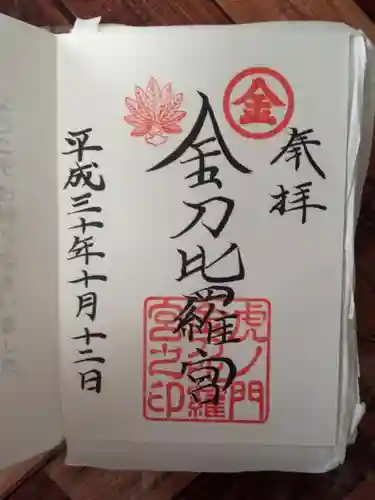 奉拝
金
金刀比羅宮
虎ノ門
金刀比羅
宮之印
平成三十年十月十二日